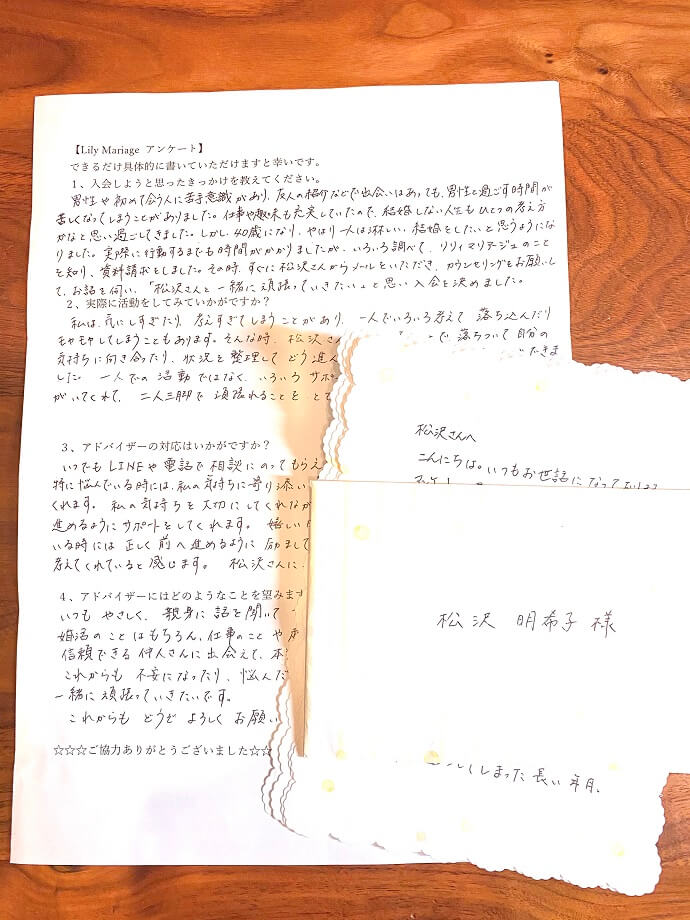 【Lily Mariage アンケート】
できるだけ具体的に書いていただけますと幸いです。
1、入会しようと思ったきっかけを教えてください。
男性や初めて会う人に苦手意識があり、友人の紹介などで出会いはあっても、男性と過ごす時間が
苦しくなってしまうことがありました。仕事や趣味も充実していたので、結婚しない人生もひとつの考え方
かなと思い過ごしてきました。しかし、40歳になり、やはり一人は淋しい、結婚をしたいと思うようにな
りました。実際に行動するまでも時間がかかりましたが、いろいろ調べて、リリィマリアージュのこと
を知り、資料請求をしました。その時、すぐに松沢さんからメールをいただき、カウンセリングをお願いし
て、お話を伺い、「松沢さんと一緒に頑張っていきたい。」と思い入会を決めました。
2、実際に活動をしてみていかがですか？
私は、気にしすぎたり、考えすぎてしまうことがあり、一人でいろいろ考えて 落ち込んだり
モヤモヤしてしまうこともあります。そんな時、松沢さ で、落ちついて自分の
気持ちに向き合ったり、状況を整理して どう進ん だきま
した。一人での活動ではなく、いろいろ サポ
がいてくれて、二人三脚で 頑張れることを とて
3、アドバイザーの対応はいかがですか？
いつでも LINEや電話で 相談にのってもらえ
特に悩んでいる時には、私の気持ちに寄り添い
くれます。私の気持ちを大切にしてくれなが
進めるようにサポートをしてくれます。嬉しい
いる時には 正しく前へ進めるように 励まして
考えてくれていると感じます。松沢さんに
4、アドバイザーにはどのようなことを望みます
いつも やさしく、親身に話を聞いて
婚活のことはもちろん、仕事のことや
信頼できる仲人さんに出会えて、本
これからも 不安になったり、悩んだ
一緒に頑張っていきたいです。
これからも どうぞ よろしく お願い
☆☆☆ご協力ありがとうございました☆☆
松沢さんへ
こんにちは。いつもお世話になって
松沢 明希子 様
しまった長い年月、